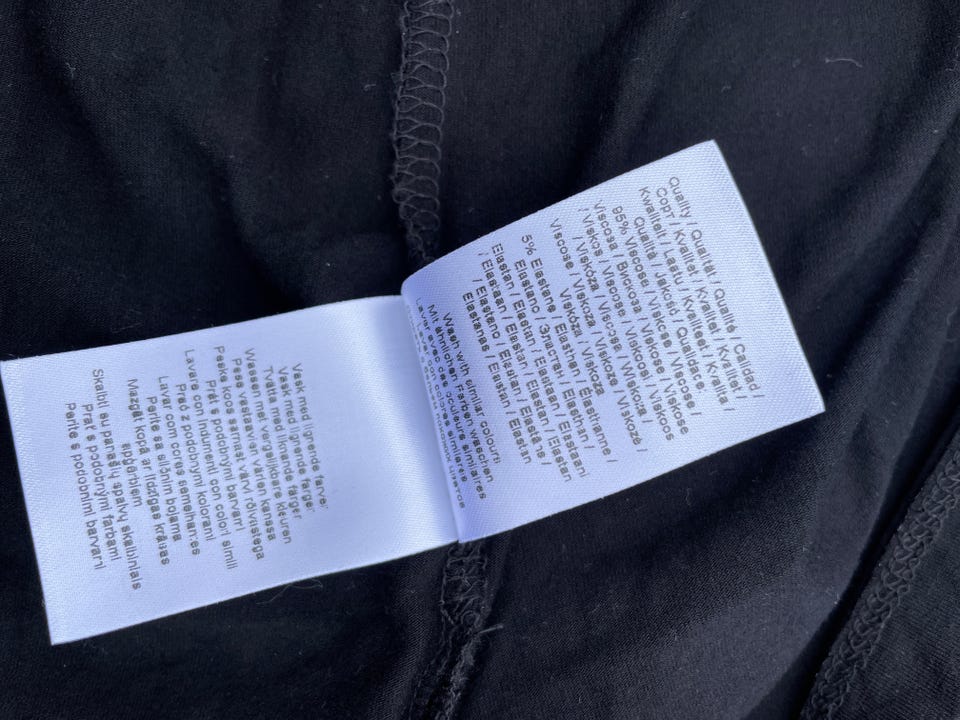 Quality / Qualität / Qualité / Calidad /
Сорт / Kvalitet / Kvalitet / Kvalitet /
Kwaliteit / Laatu / Kvaliteet / Kvalita /
Qualità / Jakość /
95% Viscose / Viskose / Viscose /
Viscosa / Вискоза / Viskose / Viskose
/ Viskos / Viscose / Viskoosi / Viskoos
/ Viskóza / Viscosa / Wiskoza /
Viscose /
5% Elastane / Elasthan / Elasthanne /
Elastano / Эластан / Elastan / Elasthan /
Elastan / Elastan / Elastaan / Elastaani
/ Elastaan / Elastan / Elastan /
/ Elastano / Elastan /
Elastanas / Elastan / Elastan
Wash with similar colours
Mit ähnlichen Farben waschen
Laver avec des couleurs similaires
Lavar con colores similares
Vask med lignende farver
Vask med lignende farger
Tvätta med liknande färger
Wassen met vergelijkbare kleuren
Pese vastaavien värien kanssa
Peske koos samast värvi rõivistega
Prát s podobnými barvami
Lavare con indumenti con colori simili
Prać z podobnymi kolorami
Lavar com cores semelhantes
Perite sa sličnim bojama
Mazgāt kopā ar līdzīgas krāsas
apģērbiem
Skalbti su panašių spalvų skalbiniais
Prať s podobnými farbami
Perite s podobnimi barvami